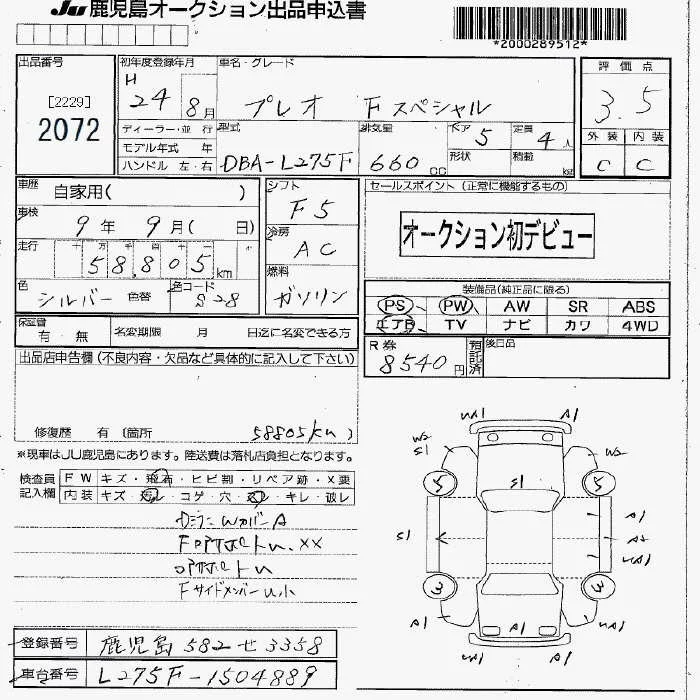 JU 鹿児島オークション出品申込書
*2000289512*
出品番号
[2229]
2072
初年度登録年月
H
24 年 8月
車名・グレード
プレオ Fスペシャル
ディーラー・並 行
モデル年式 年
ハンドル 左・右
型式
DBA-L275F
排気量
660 CC
ドア 5
形状
定員 4 人
積載 kg
評価点
3.5
外装 内装
C C
車歴 自家用( )
車検 9年 9月( 日)
走行 十 万 千 百 十
58,805 km
色 シルバー 色替
色コード S28
シフト
F5
冷房
AC
燃料
ガソリン
セールスポイント (正常に機能するもの)
オークション初デビュー
装備品(純正品に限る)
PS PW AW SR ABS
エアB TV ナビ カワ 4WD
保証書 有・無
名変期限 月 日迄に名変できる方
R券
8540円
預託済
後日品
出品店申告欄(不良内容・欠品など具体的に記入して下さい)
修復歴 有 (箇所 58805km )
※現車はJU鹿児島にあります。陸送費は落札店負担となります。
検査員記入欄
FW キズ・飛石・ヒビ割・リペア跡・X要
内装 キズ・汚レ・コゲ・穴・スレ・キレ・破レ
Fサイドメンバー
WA1 A1
W2
S1
W2
5 S1 5
S1 A1
UA1
3 3
A1 A1 A1 UA1
UA1 A1
登録番号 鹿児島 582 せ 3358
車台番号 L275F-1504889